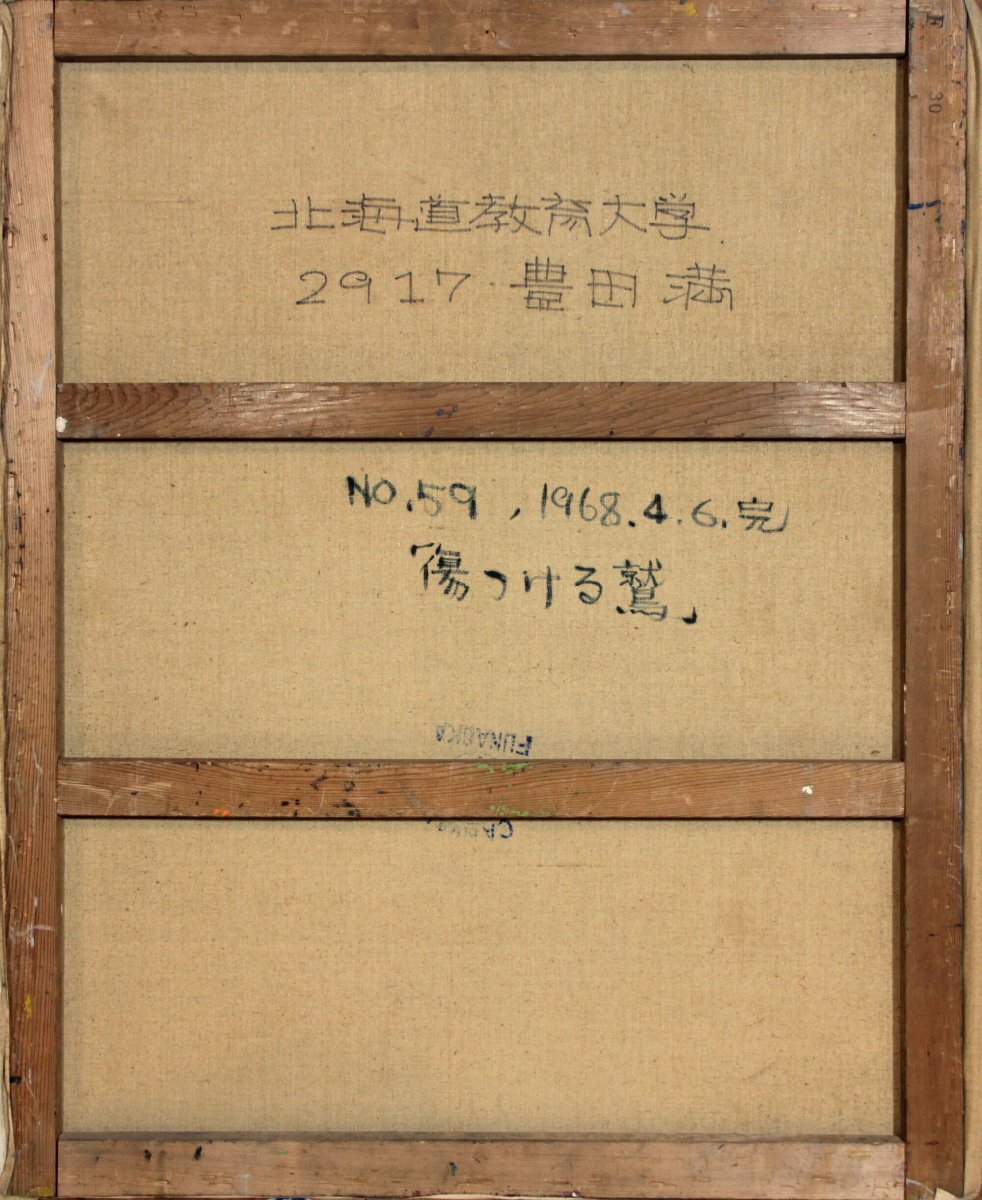 F
30
北海道教育大学
2917 豊田満
NO.59, 1968.4.6.完
「傷つける鷲」
FUNAOKA